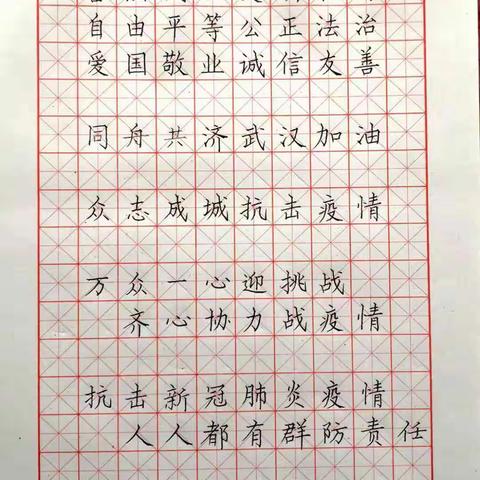 自由平等公正法治
爱国敬业诚信友善
同舟共济武汉加油
众志成城抗击疫情
万众一心迎挑战
齐心协力战疫情
抗击新冠肺炎疫情
人人都有群防责任